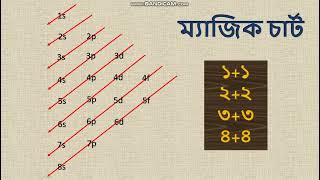 WWW.BANDICAM.COM
ম্যাজিক চার্ট
1s
2s 2p
3s 3p 3d
4s 4p 4d 4f
5s 5p 5d 5f
6s 6p 6d
7s 7p
8s
১+১
২+২
৩+৩
৪+৪